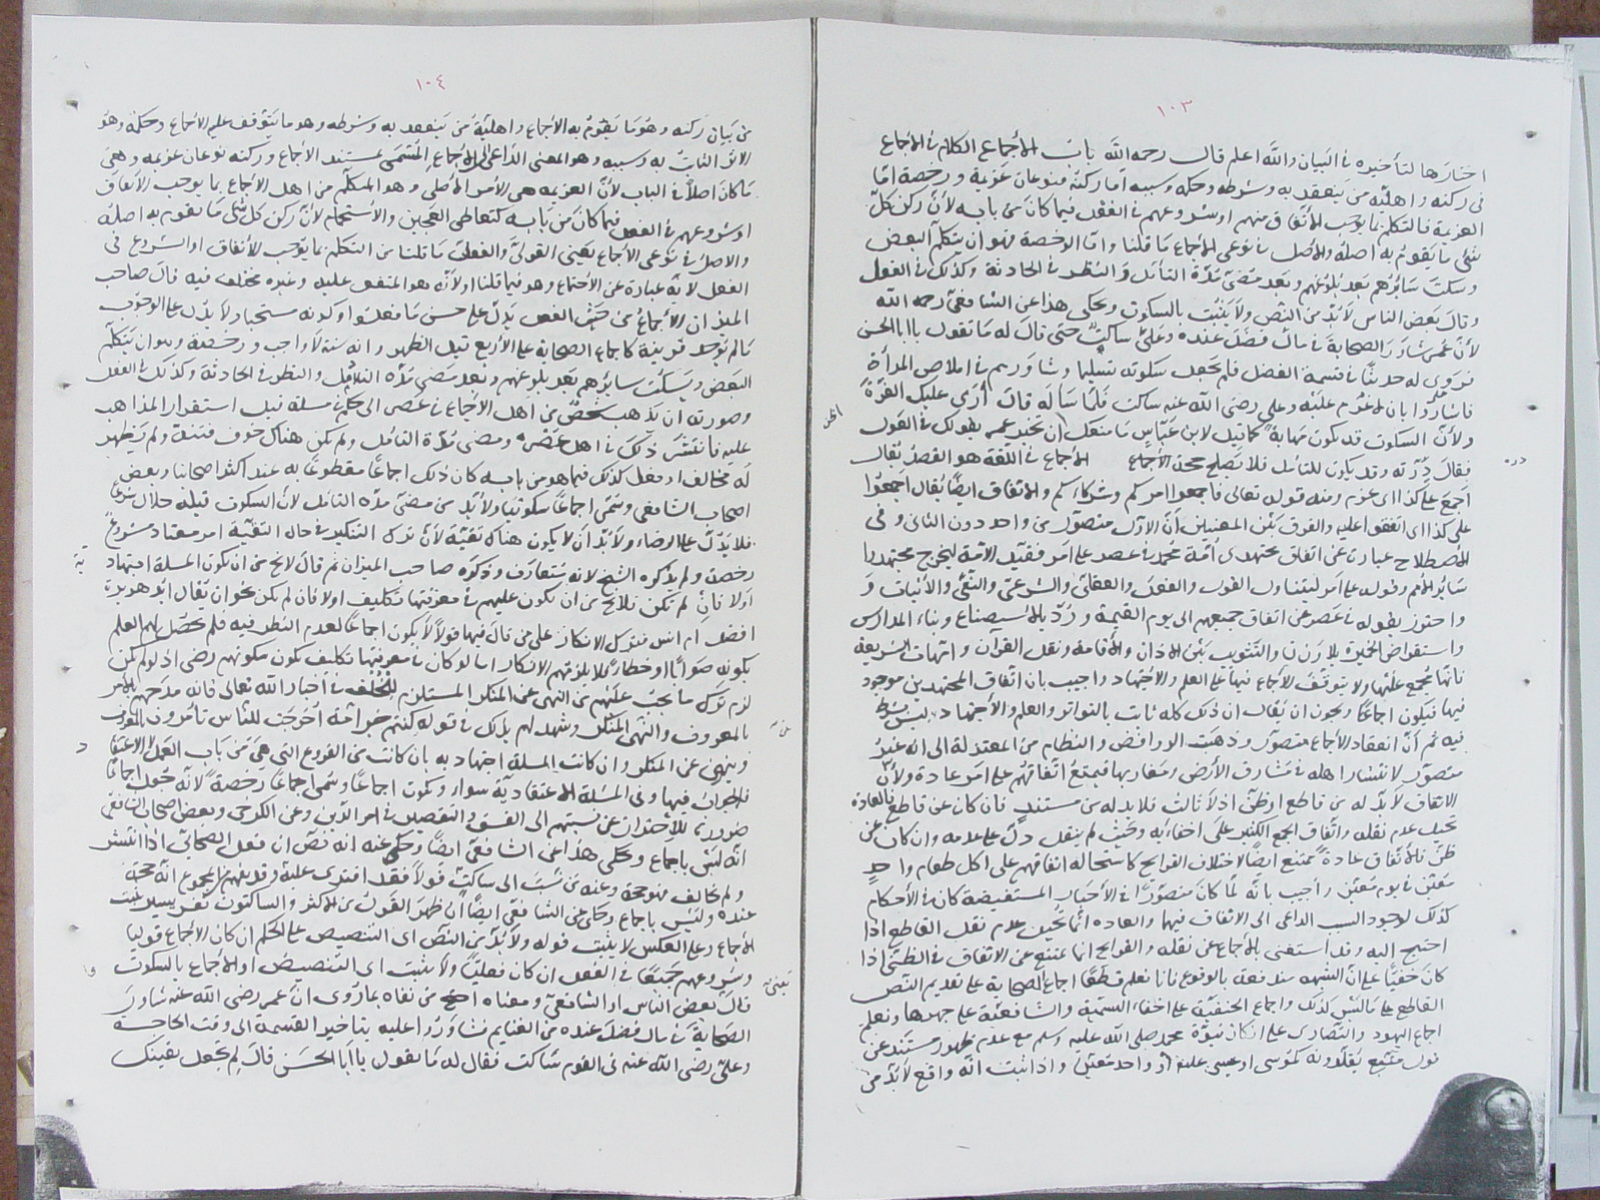 ١٠٣
اختارها لتأخيره في البيان والله اعلم قال رحمه الله باب الإجماع الكلام في الإجماع
في ركنه واهلية من ينعقد به وشرطه وحكمه وسببه اما ركنه فنوعان عزيمة ورخصة اما
العزيمة فالتكلم بما يوجب الاتفاق منهم او شروعهم في الفعل فيما كان من بابه لأن ركن كل
شئ ما يقوم به اصله والاصل في نوعي الاجماع ما قلنا واما الرخصة فهو ان يتكلم البعض
وسكت سائرهم بعد بلوغهم وبعد مضي مدة التأمل والنظر في الحادثة وكذلك في الفعل
وقال بعض الناس لابد من النص ولا يثبت بالسكوت وحكى هذا عن الشافعي رحمه الله
لأن عمر شاور الصحابة في مال فضل عنده وعلي ساكت حتى قال له ما تقول يا ابا الحسن
فروى له حديثا في قسمة الفضل فلم يجعل سكوته تسليما وشاورهم في املاص المرأة
فاشاروا بان لا غرم عليه وعلي رضى الله عنه ساكت فلما سأله قال أرى عليك الغرة
ولأن السكوت قد يكون مهابة كما قيل لابن عباس ما منعك ان تخبر عمر بقولك في العول
فقال درته وقد يكون للتأمل فلا يصلح حجة الإجماع الاجماع في اللغة هو القصد يقال
اجمع على كذا اى عزم ومنه قوله تعالى فاجمعوا امركم وشركاءكم والاتفاق ايضا يقال اجمعوا
على كذا اى اتفقوا عليه والفرق بين المعنيين أن الاول متصور من واحد دون الثاني وفي
الاصطلاح عبارة عن اتفاق مجتهدى أمة محمد في عصر على امر فقيد الامة ليخرج مجتهدوا
سائر الأمم وقوله على امر ليتناول القول والفعل والعقلي والشرعي والنفي والاثبات و
واحترز بقوله في عصر عن اتفاق جميعهم الى يوم القيمة ورد بالاستصناع وبناء المدارس
واستقراض الخبز بلا وزن والتثويب بين الاذان والاقامة ونقل القرآن وامهات الشريعة
فانها مجمع عليها ولا يتوقف الاجماع فيها على العلم والاجتهاد واجيب بان اتفاق المجتهدين موجود
فيها فيكون اجماعا ويجوز ان يقال ان ذلك كله ثابت بالتواتر والعلم والاجتهاد ليس بشرط
فيه ثم أن انعقاد الاجماع متصور وذهبت الروافض والنظام من المعتزلة الى انه غير
متصور لانتشار اهله في مشارق الأرض ومغاربها فيمتنع اتفاقهم على امر عادة ولأن
الاتفاق لابد له من قاطع او ظني اذ لا ثالث فلا بد له من مستند فان كان عن قاطع فالعادة
تحيل عدم نقله واتفاق الجمع الكثير على اخفائه وحيث لم ينقل دل على عدمه وان كان عن
ظني فالاتفاق عادة ممتنع ايضا لاختلاف القرايح كاستحالة اتفاقهم على اكل طعام واحد
معين في يوم معين واجيب بانه لما كان متصورا في الأخبار المستفيضة كان في الأحكام
كذلك لوجود السبب الداعي الى الاتفاق فيها والعادة انما تحيل عدم نقل القاطع اذا
احتيج اليه وقد استغنى بالاجماع عن نقله والقرايح انما تمتنع عن الاتفاق في الظني اذا
كان خفيا على ان الشبهة مندفعة بالوقوع فانا نعلم قطعا اجماع الصحابة على تقديم النص
القاطع على ما ليس كذلك واجماع الحنفية على اخفاء التسمية والشافعية على جهرها ونعلم
اجماع اليهود والنصارى على انكار نبوة محمد صلى الله عليه وسلم مع عدم ظهور مستند عن
قول متبع يقلدونه كموسى او عيسى عليه او واحد معين واذا ثبت انه واقع لابد من
١٠٤
من بيان ركنه وهو ما يقوم به الاجماع واهلية من ينعقد به وشرطه وهو ما يتوقف عليه الاجماع وحكمه وهو
الاثر الثابت به وسببه وهو المعنى الداعي الى الاجماع المسمى بمستند الاجماع وركنه نوعان عزيمة وهي
ما كان اصلا في الباب لأن العزيمة هي الأمر الأصلي وهو المتكلم من اهل الاجماع بما يوجب الاتفاق
او شروعهم في الفعل فيما كان من بابه كتعاطي العجين والاستحمام لأن ركن كل شئ ما يقوم به اصله
والاصل في نوعي الاجماع يعني القولي والفعلي ما قلنا من التكلم بما يوجب الاتفاق او الشروع في
الفعل لانه عبارة عن الاجتماع وهو فيما قلنا اولانه هو المتفق عليه وغيره مختلف فيه قال صاحب
الميزان الاجماع من حيث الفعل يدل على حسن ما فعلوا وكونه مستحبا ولا يدل على الوجوب
ما لم يوجد قرينة كاجماع الصحابة على الأربع قبل الظهر وانه سنة لا واجب ورخصة وهو ان يتكلم
البعض ويسكت سائرهم بعد بلوغهم وبعد مضى مدة التأمل والنظر في الحادثة وكذلك في الفعل
وصورته ان يذهب شخص من اهل الإجماع في عصر الى حكم في مسئلة قبل استقرار المذاهب
عليه فانتشر ذلك في اهل عصره ومضى مدة التأمل ولم يكن هناك خوف فتنة ولم يظهر
له مخالف او فعل كذلك فيما هو من بابه كان ذلك اجماعا مقطوعا به عند اكثر اصحابنا وبعض
اصحاب الشافعي وسمي اجماعا سكوتيا ولابد من مضى مدة التأمل لأن السكوت قبله حلال شرعا
فلا يدل على الرضاء ولابد أن لا يكون هناك تقية لأن ترك التنكير في حال التقية امر معتاد مشروع
رخصة ولم يذكره الشيخ لانه متعارف وذكره صاحب الميزان ثم قال لا يخ من ان يكون المسئلة اجتهاد
اولا فان لم تكن فلا يخ من ان يكون عليهم في معرفتها تكليف اولا فان لم يكن نحو ان يقال ابو هريرة
افضل ام انس فترك الانكار على من قال فيها قولا لا يكون اجماعا لعدم النظر فيه فلم يحصل لهم العلم
بكونه صوابا او خطاء فلا يلزمهم الانكار اما لو كان في معرفتها تكليف يكون سكوتهم رضى اذ لو لم يكن
لزم ترك ما يجب عليهم من النهي عن المنكر المستلزم للخلف في أخبار الله تعالى فانه مدحهم بالامر
بالمعروف والنهي المنكر وشهد لهم بذلك في قوله كنتم خير امة أخرجت للناس تأمرون بالمعروف
وينهون عن المنكر وان كانت المسئلة اجتهادية بان كانت من الفروع التي هي من باب العمل لا الاعتقاد
فالجواب فيها وفي المسئلة الاعتقادية سواء ويكون اجماعا وسمى اجماعا رخصة لانه جعل اجماعا
ضرورة للاحتراز عن نسبتهم الى الفسق والتقصير في امر الدين وعن الكرخي وبعض اصحاب الشافعي
انه ليس باجماع وحكى هذا عن الشافعي ايضا وحكى عنه انه نص ان قول الصحابي اذا انتشر
ولم يخالف فهو حجة وعنه من نسب الى ساكت قولا فقد افترى عليه وقوله المجموع انه حجة
عنده وليس باجماع وحكى عن الشافعي ايضا ان ظهر القول من الاكثر والساكتون نفر يسير يثبت
الاجماع وعلى العكس لا يثبت قوله ولابد من النص اى التنصيص على الحكم ان كان الاجماع قوليا
وشروعهم جميعا في الفعل ان كان فعليا ولا يثبت اى التنصيص او الاجماع بالسكوت
قال بعض الناس او الشافعي ومعناه احتج من نفاه بما روى ان عمر رضى الله عنه شاور
الصحابة في مال فضل عنده من الغنايم فشاوروا عليه بتاخير القسمة الى وقت الحاجة
وعلي رضى الله عنه في القوم ساكت فقال له ما تقول يا أبا الحسن قال لم تجعل يقينك